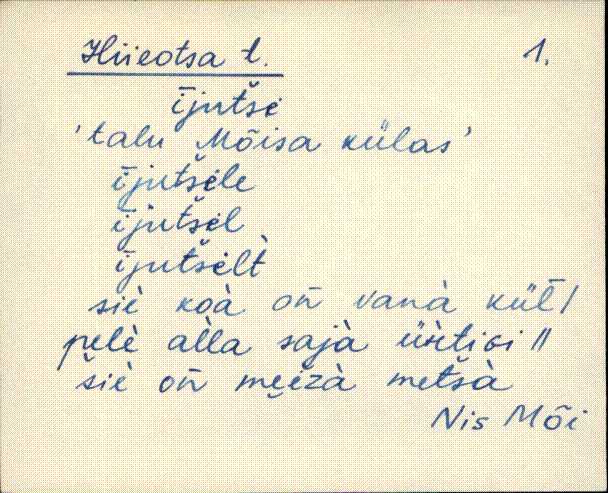 Hiieotsa t. 1.
ījutše
'talu Mõisa külas'
ījutšele
ījutšel
ījutšelt̀
siè koà on̄ vanà kül̄ /
pelè al̀la sajà ǖ̀tici //
šiè on̄ mẹizà metšà
Nis Mõi